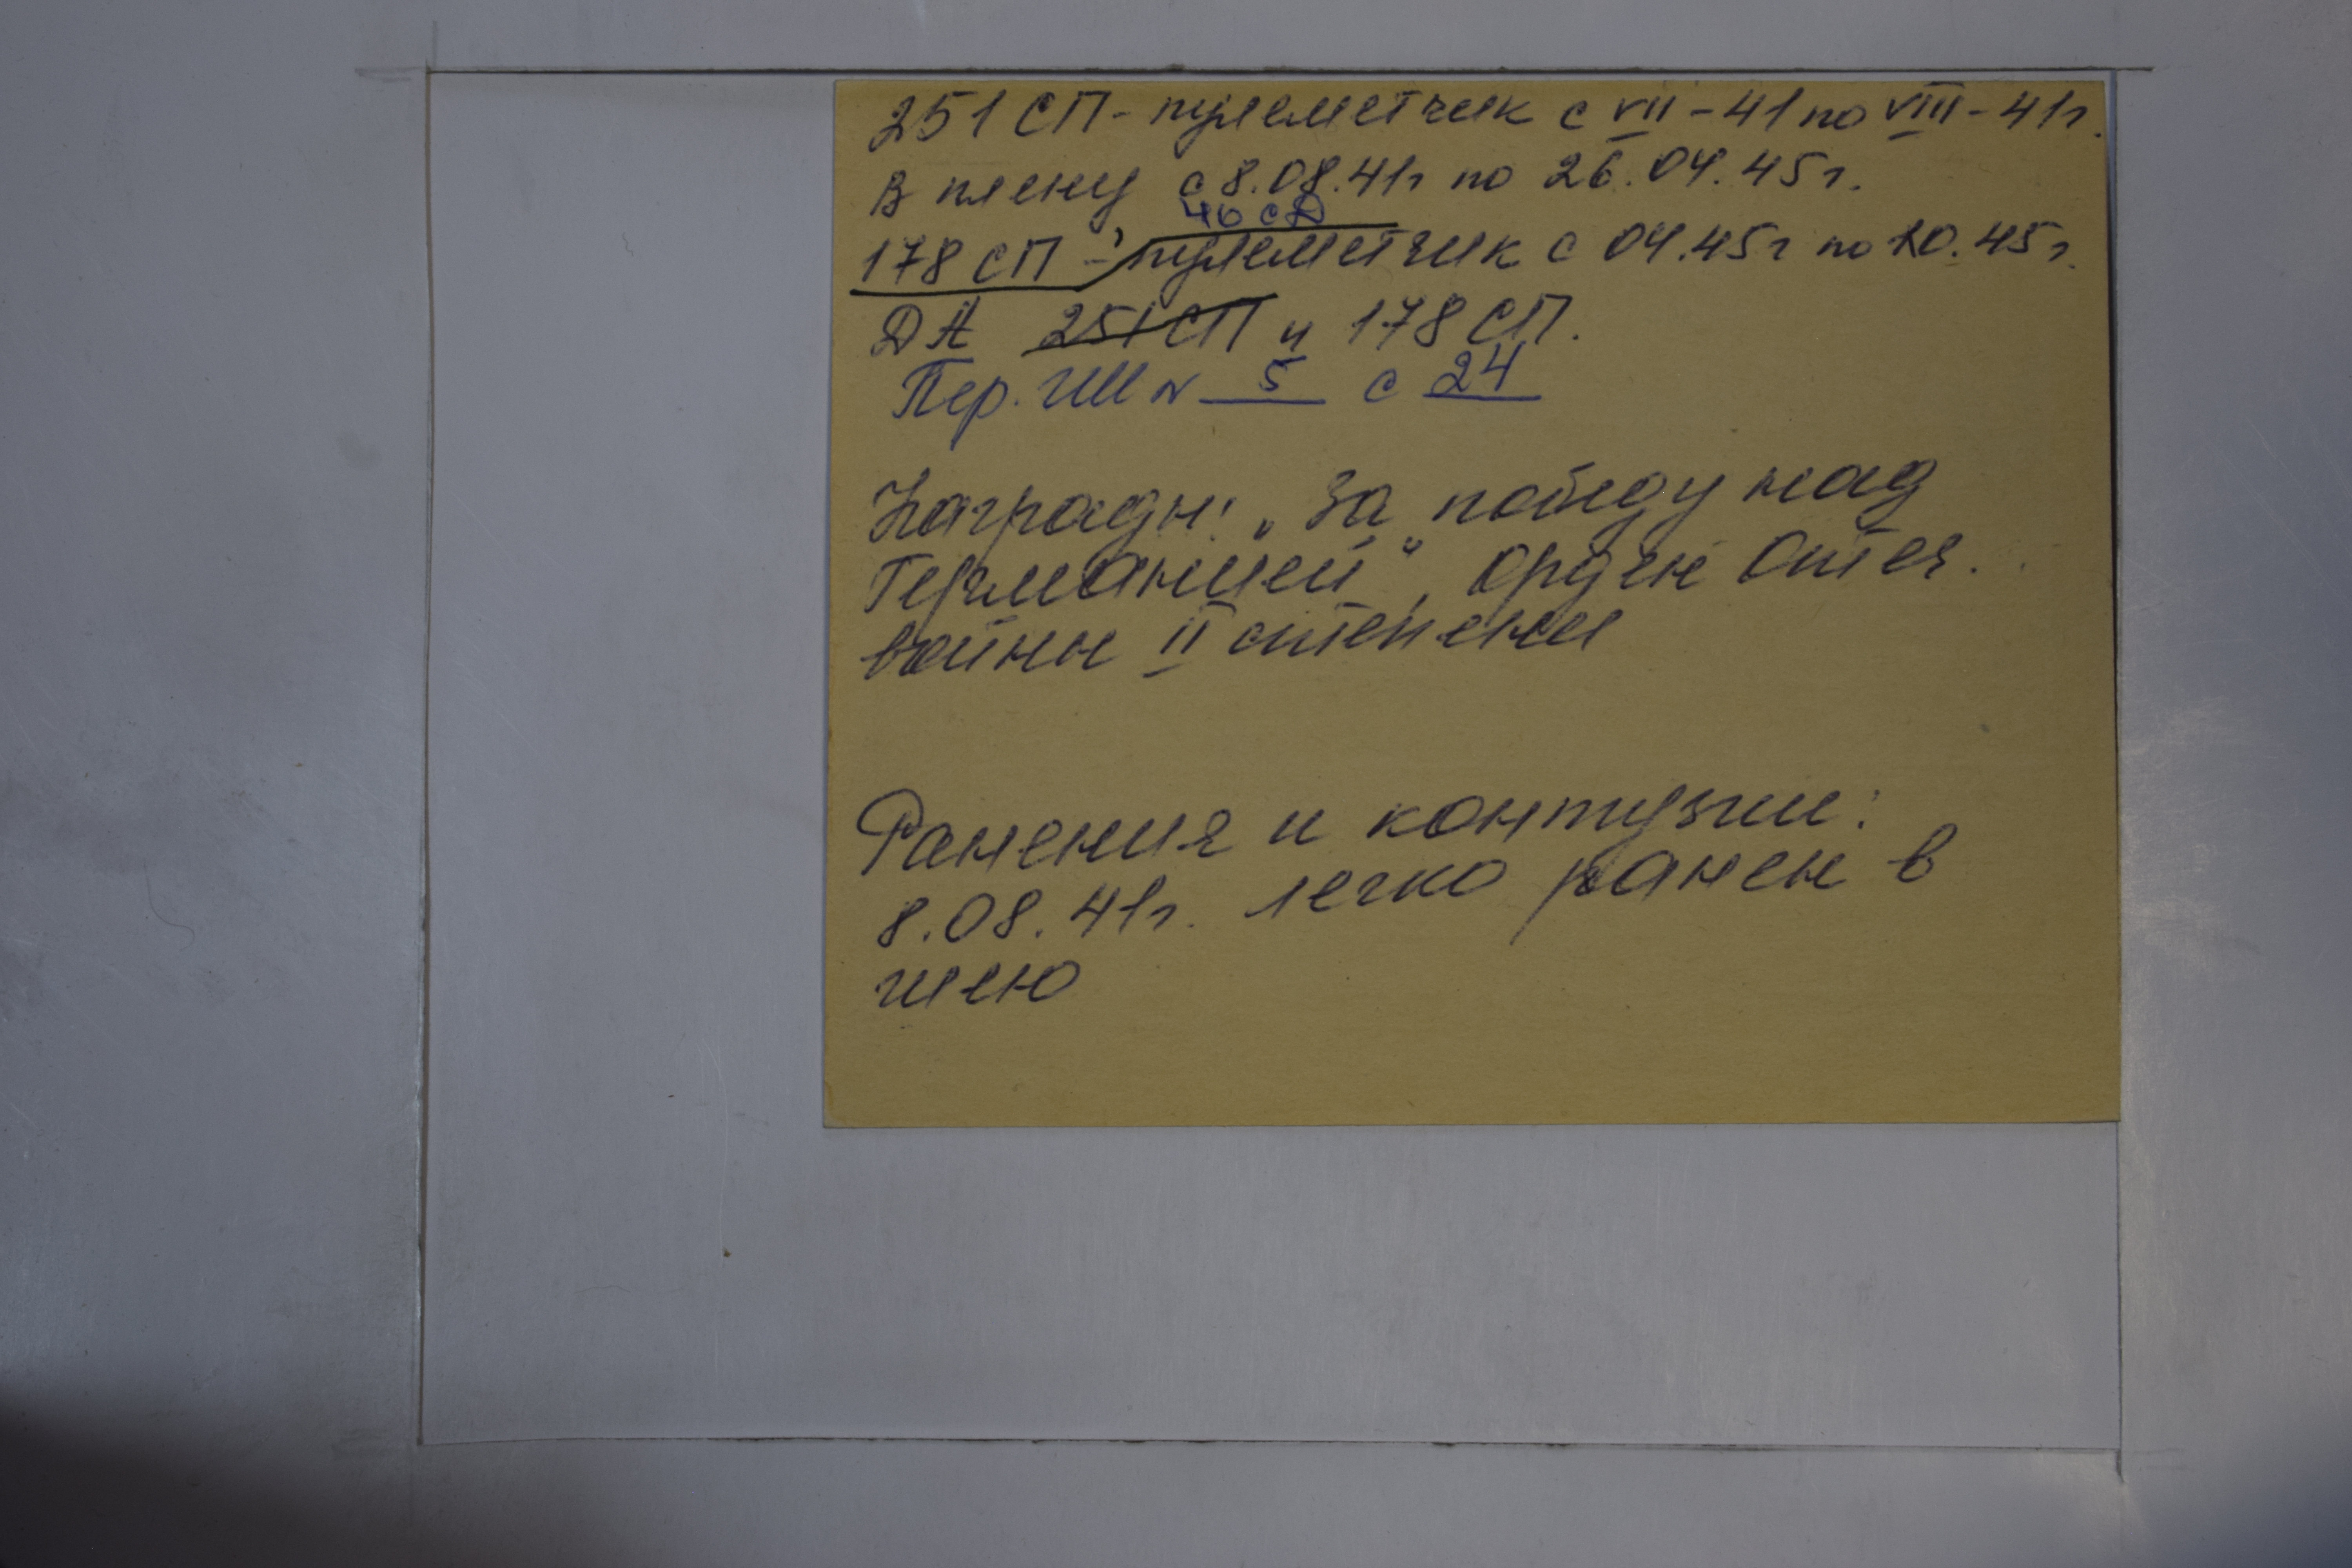 251 СП - пулеметчик с VII - 41 по VIII - 41г.
В плену с 8.08.41г по 26.04.45г.
46 сД
178 СП - пулеметчик с 04.45г по 10.45г.
ДА 251 СП и 178 СП.
Пер. ГШ № 5 с 24
Награды: „За победу над
Германией“, Орден Отеч.
войны II степени
Ранения и контузии:
8.08.41г. легко ранен в
шею